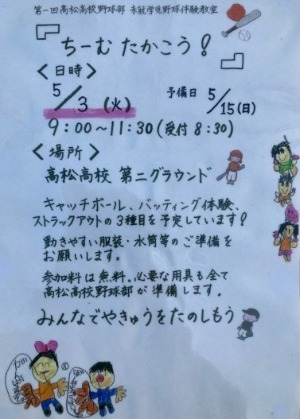 第一回高松高校野球部 未就学児野球体験教室
ちーむ たかこう!
<日時>
5/3(火) 予備日 5/15(日)
9:00~11:30(受付 8:30)
<場所>
高松高校 第二グラウンド
キャッチボール、バッティング体験、
ストラックアウトの3種目を予定しています!
動きやすい服装・水筒等のご準備を
お願いします。
参加料は無料。必要な用具も全て
高松高校野球部が準備します。
みんなでやきゅうをたのしもう